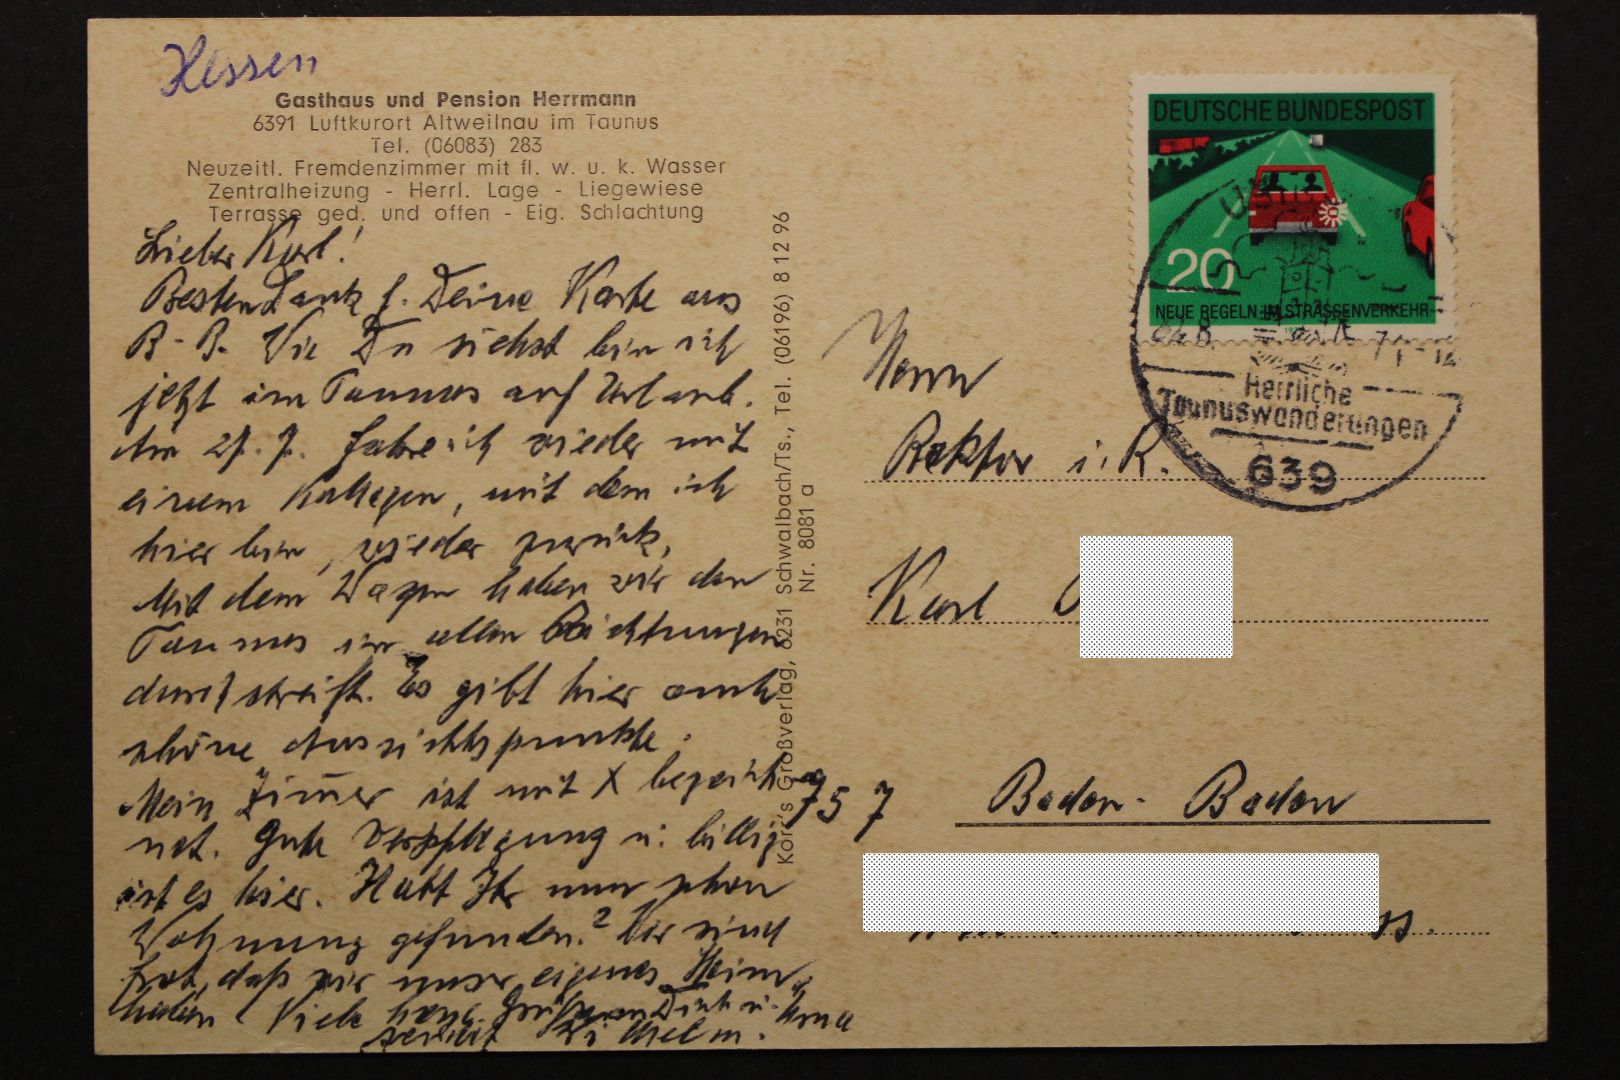 Hessen
Gasthaus und Pension Herrmann
6391 Luftkurort Altweilnau im Taunus
Tel. (06083) 283
Neuzeitl. Fremdenzimmer mit fl. w. u. k. Wasser
Zentralheizung - Herrl. Lage - Liegewiese
Terrasse ged. und offen - Eig. Schlachtung
Lieber Karl!
Besten Dank f. Deine Karte aus
B-B. Wie Du siehst bin ich
jetzt im Taunus auf Urlaub.
Am 27.7. fahre ich wieder mit
einem Kollegen, mit dem ich
hier bin, wieder zurück.
Mit dem Wagen haben wir den
Taunus in allen Richtungen
durchstreift. Es gibt hier auch
schöne Aussichtspunkte.
Mein Zimmer ist mit X bezeich
net. Gute Verpflegung u. billig
ist es hier. Habt Ihr nun schon
Wohnung gefunden? Wir sind
froh, daß wir unser eigenes Heim
haben. Viele herzl. Grüße an Dich u. Anna
sendet Wilhelm.
Korr's Großverlag, 6231 Schwalbach/Ts., Tel. (06196) 8 12 96
Nr. 8081 a
DEUTSCHE BUNDESPOST
20
NEUE REGELN IM STRASSENVERKEHR
Herrliche
Taunuswanderungen
639
Herrn
Rektor i. R.
Karl
757 Baden-Baden